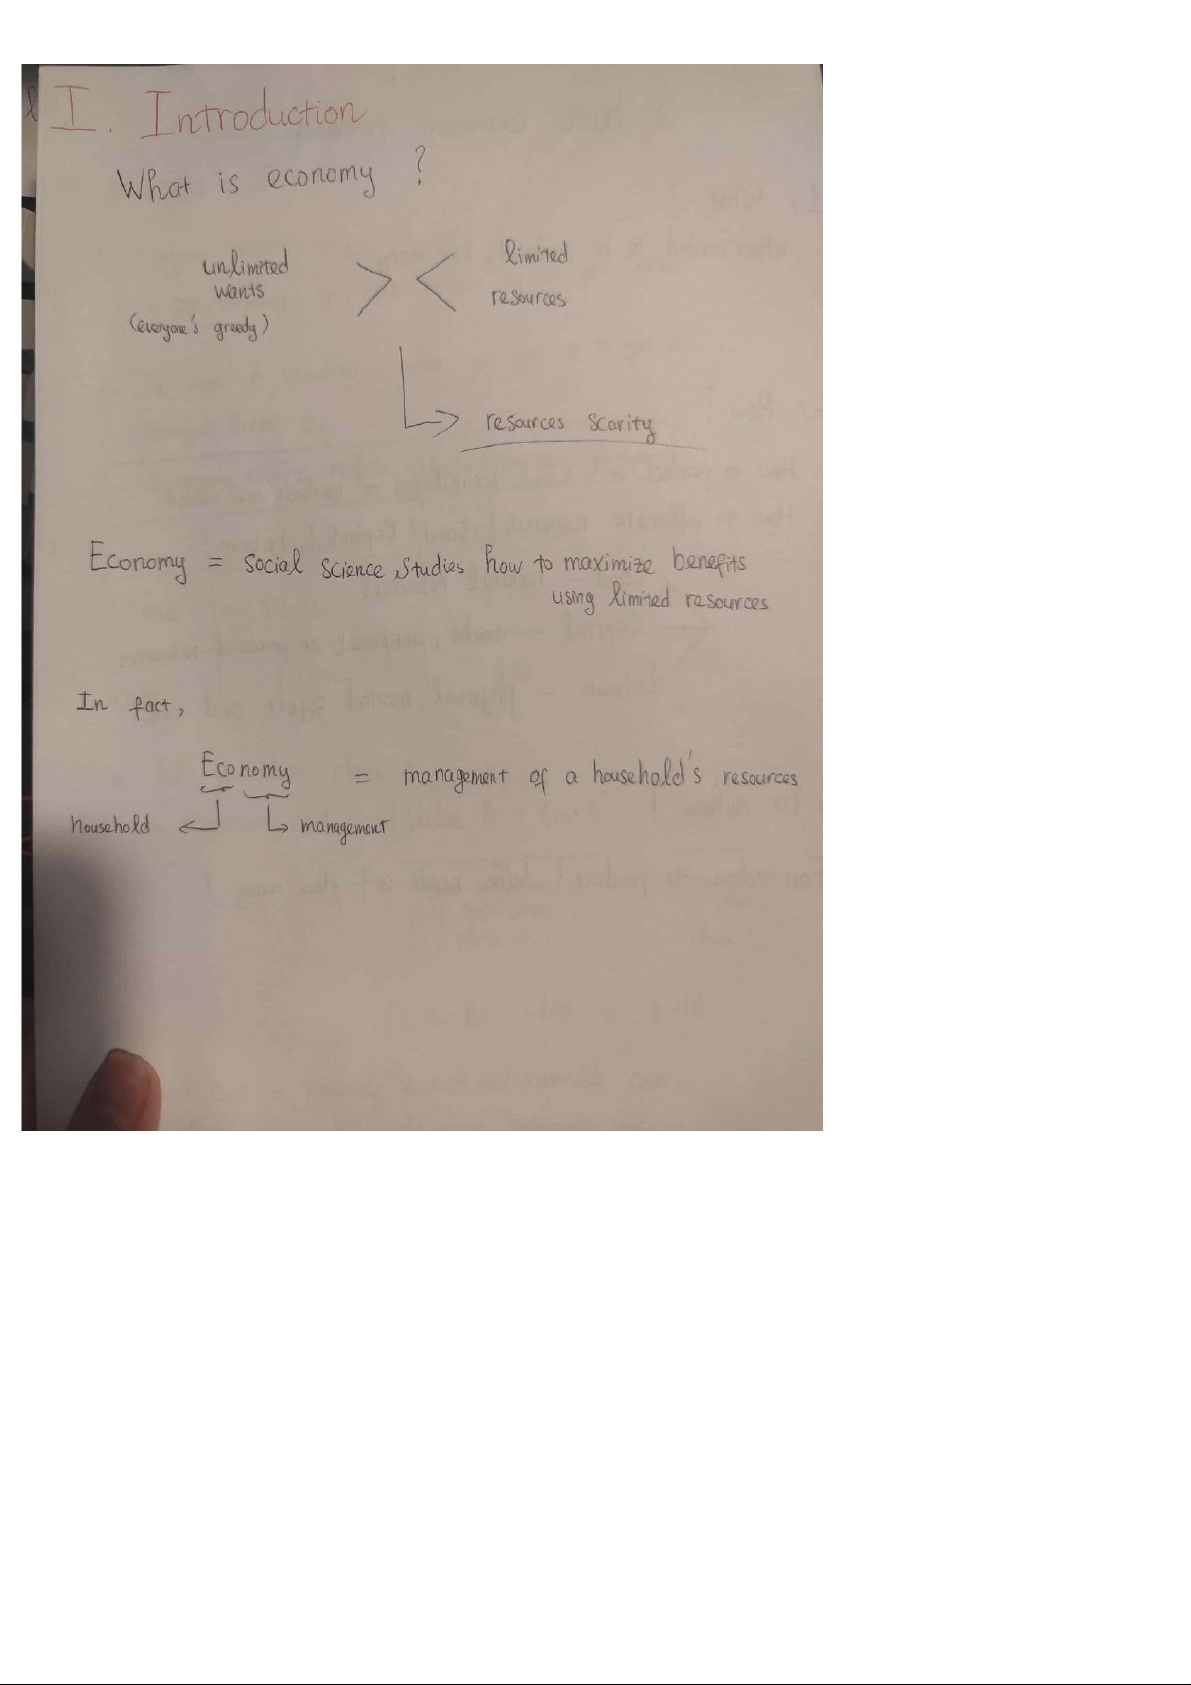 I. Introduction
What is economy ?
unlimited wants
(everyone's greedy)
> <
limited
resources
resources scarity
Economy = social science, studies how to maximize benefits
using limited resources
In fact,
Economy = management of a household's resources
household management